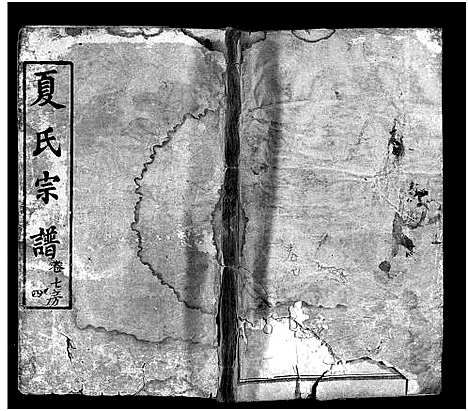 夏氏宗譜
卷七房
四
卷七